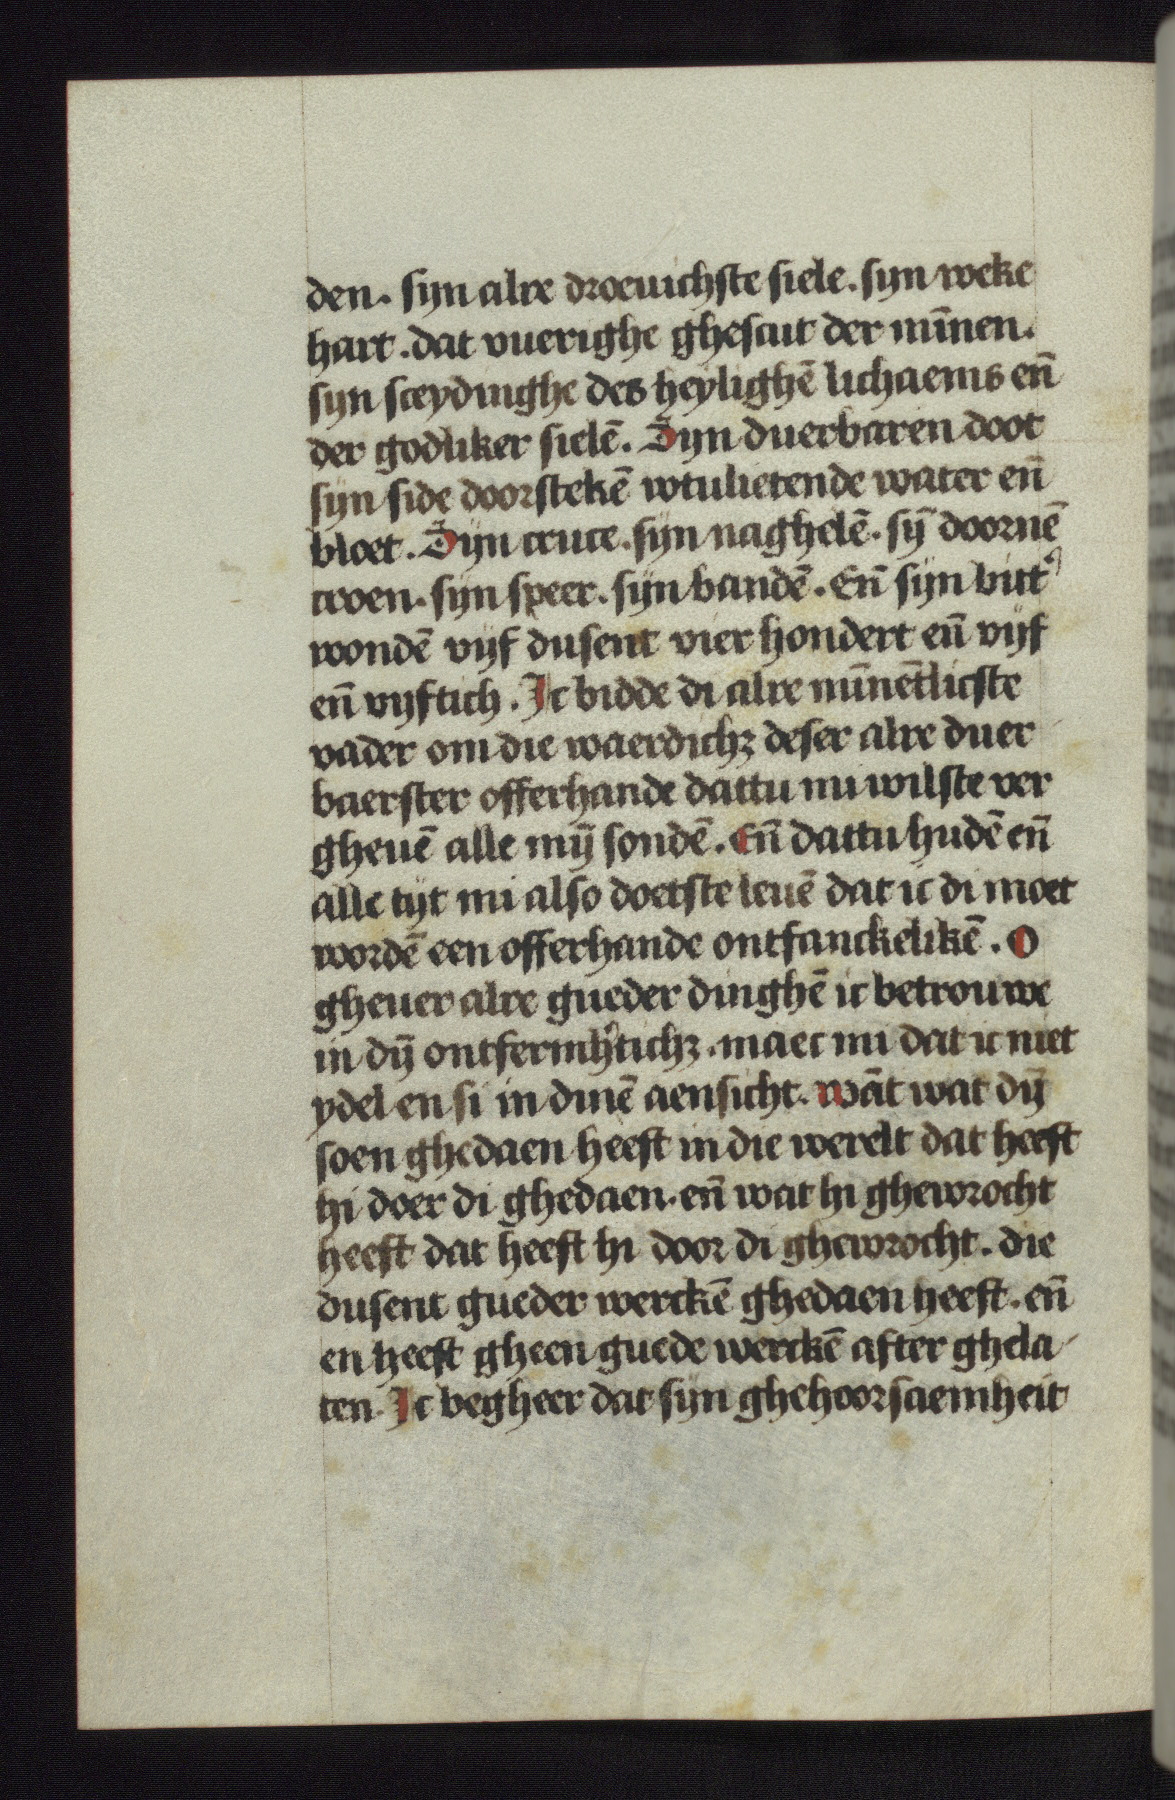 den. syn alre droeuichste siele. syn weke
hart. dat vuerighe ghescut der mīnen.
syn sceydinghe des heylighē lichaems eñ
der godliker sielē. Syn duerbaren doot
syn side doorstekē wtulietende water eñ
bloet. Syn cruce. syn naghelē. sȳ doornē
croen. syn speer. syn bandē. Eñ syn bitt᾿
wondē vijf dusent vier hondert eñ vijf
eñ vijftich. Ic bidde di alre mīnētlicste
vader om die waerdichꝫ deser alre duer
baerster offerhande dattu mi wilste ver
gheuē alle mȳ sondē. Eñ dattu hudē eñ
alle tijt mi also doetste leuē dat ic di moet
wordē een offerhande ontfanckelikē. O
gheuer alre gueder dinghē ic betrouwe
in dȳ ontfermh᾿tichꝫ. maec mi dat ic niet
ydel en si in dinē aensicht. wāt wat dȳ
soen ghedaen heeft in die werelt dat heeft
hi doer di ghedaen. eñ wat hi ghewrocht
heeft dat heeft hi door di ghewrocht. die
dusent gueder werckē ghedaen heeft. eñ
en heeft gheen guede werckē after ghela-
ten. Ic begheer dat syn ghehoorsaemheit